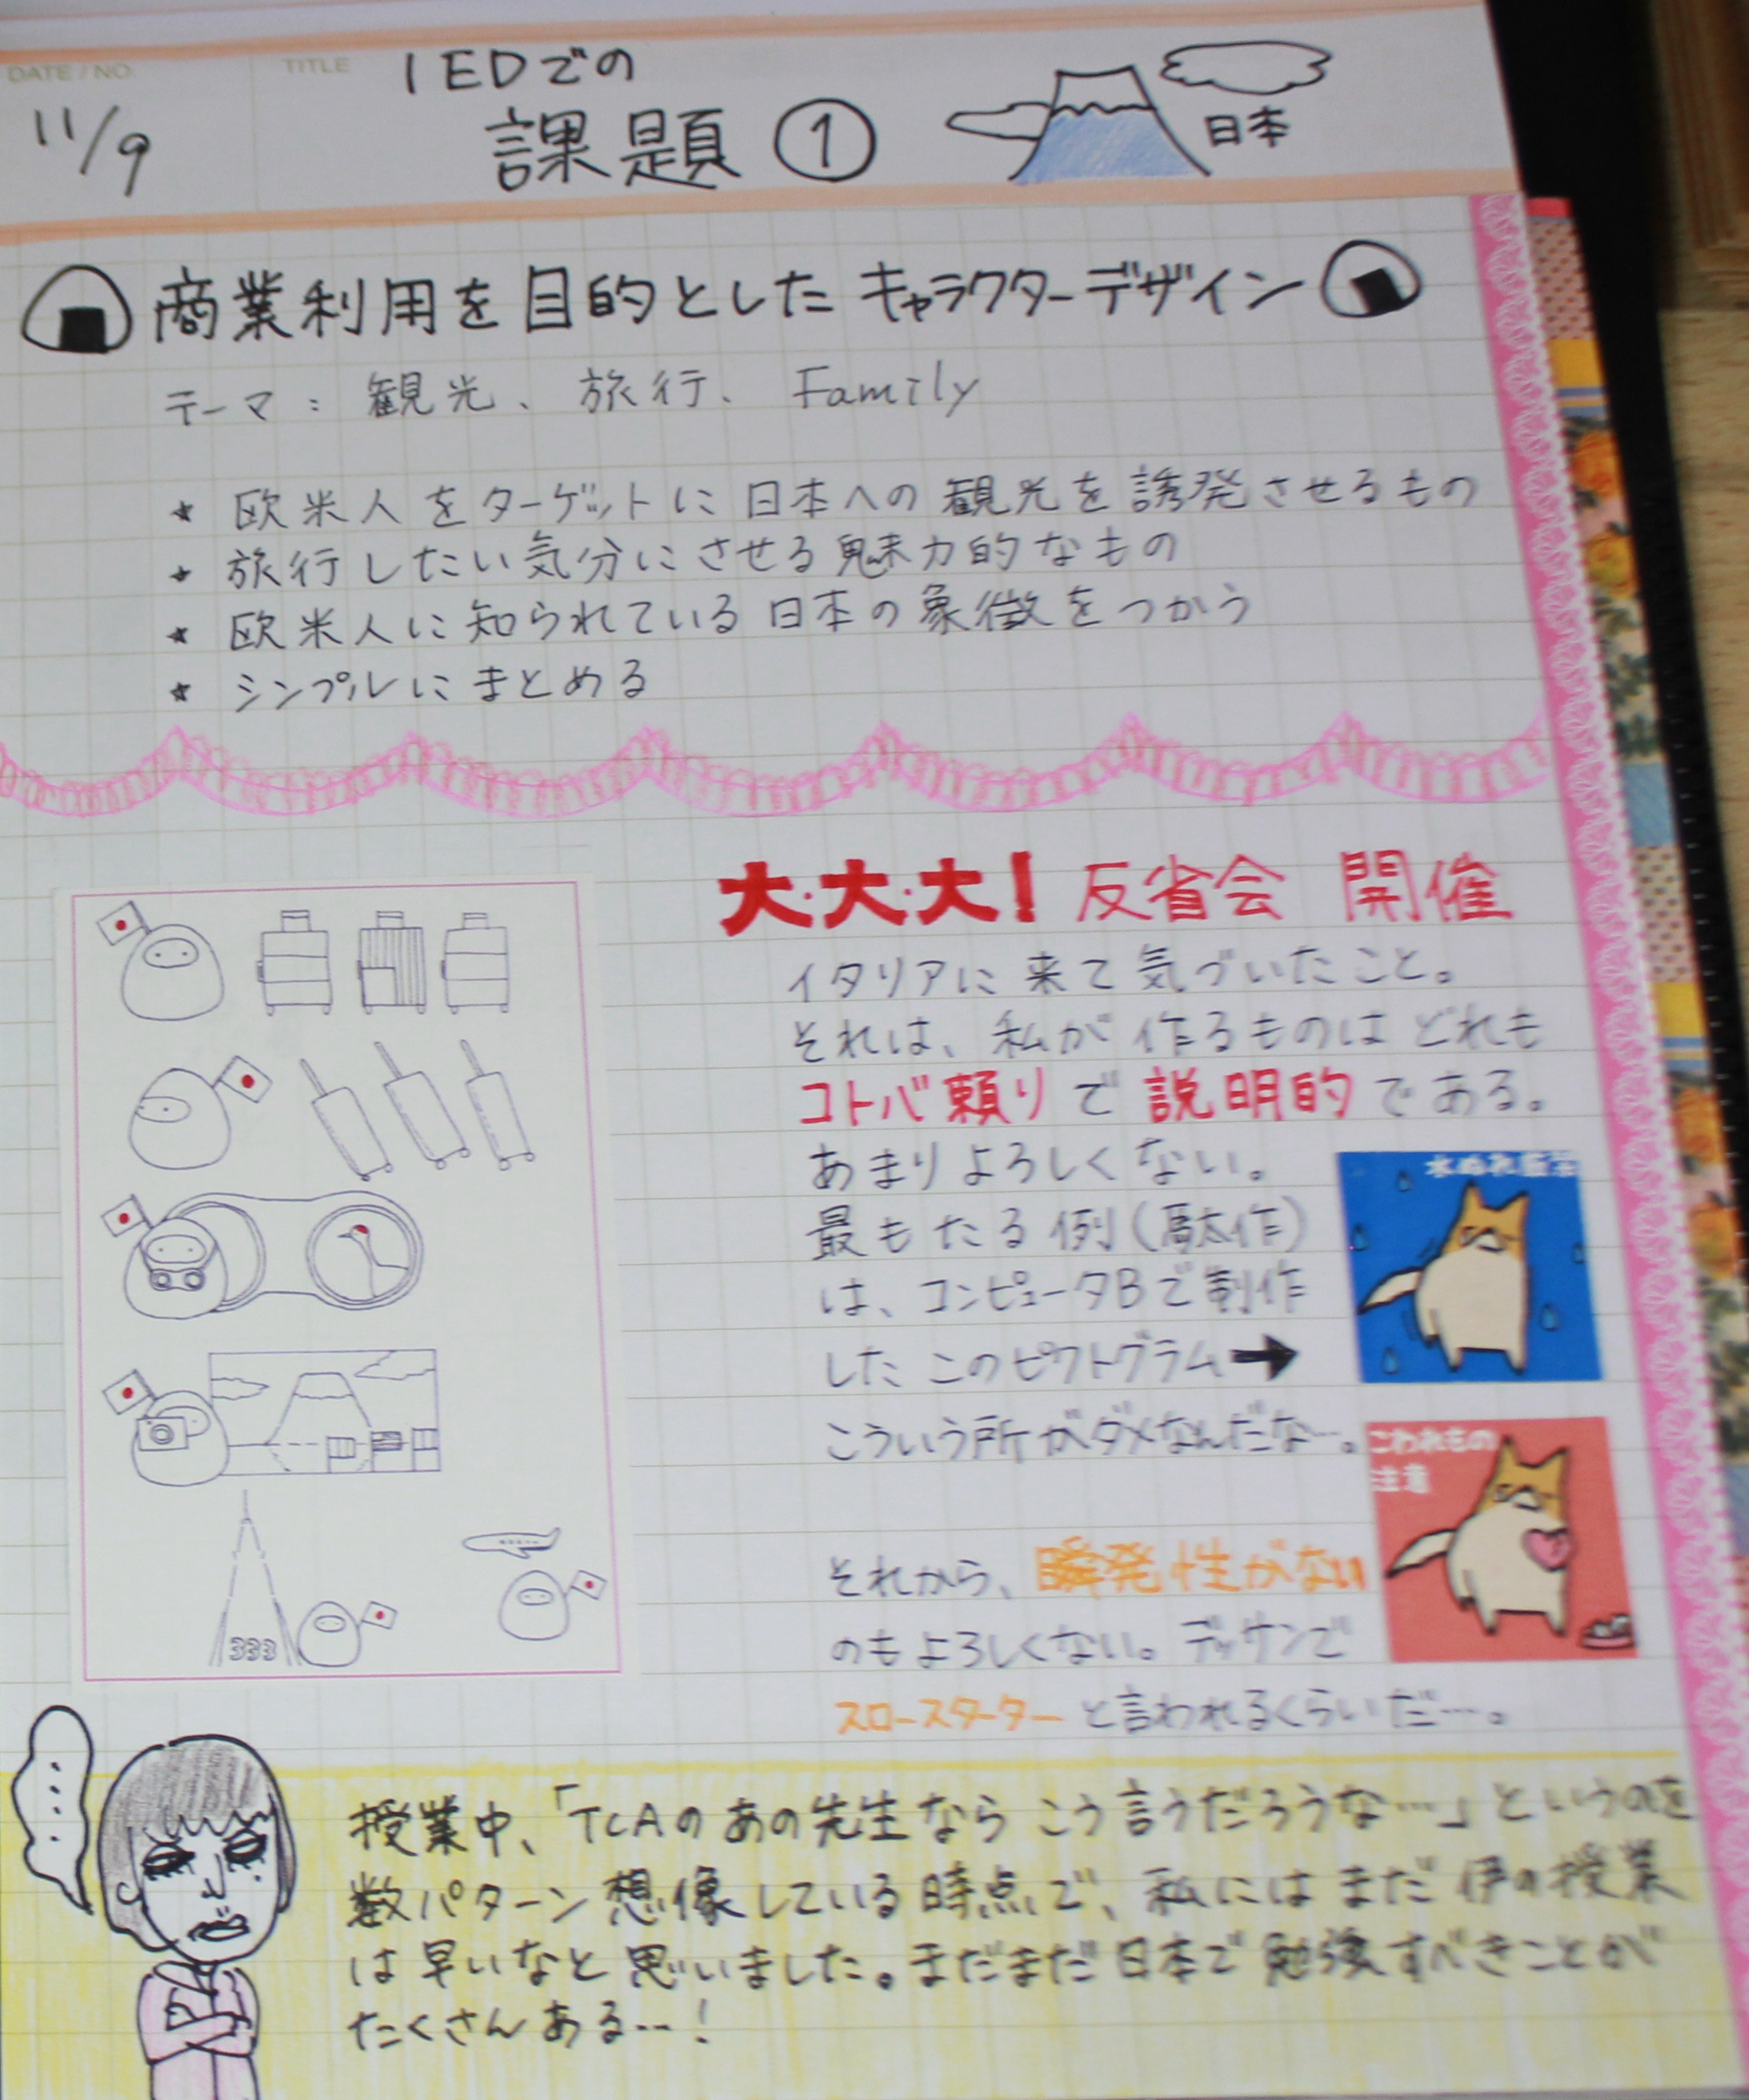 DATE / NO.
11/9
TITLE
IEDでの
課題①
日本
商業利用を目的としたキャラクターデザイン
テーマ：観光、旅行、Family
★ 欧米人をターゲットに日本への観光を誘発させるもの
★ 旅行したい気分にさせる魅力的なもの
★ 欧米人に知られている日本の象徴をつかう
★ シンプルにまとめる
大・大・大！反省会 開催
イタリアに来て気づいたこと。
それは、私が作るものはどれも
コトバ頼りで説明的である。
あまりよろしくない。
最もたる例（駄作）
は、コンピュータBで制作
した このピクトグラム→
こういう所がダメなんだな…。
水ぬれ厳禁
こわれもの
注意
それから、瞬発性がない
のもよろしくない。デッサンで
スロースターターと言われるくらいだ…。
333
授業中、「TCAのあの先生なら こう言うだろうな…」というのを
数パターン想像している時点で、私にはまだ伊の授業
は早いなと思いました。まだまだ日本で勉強すべきことが
たくさんある…！